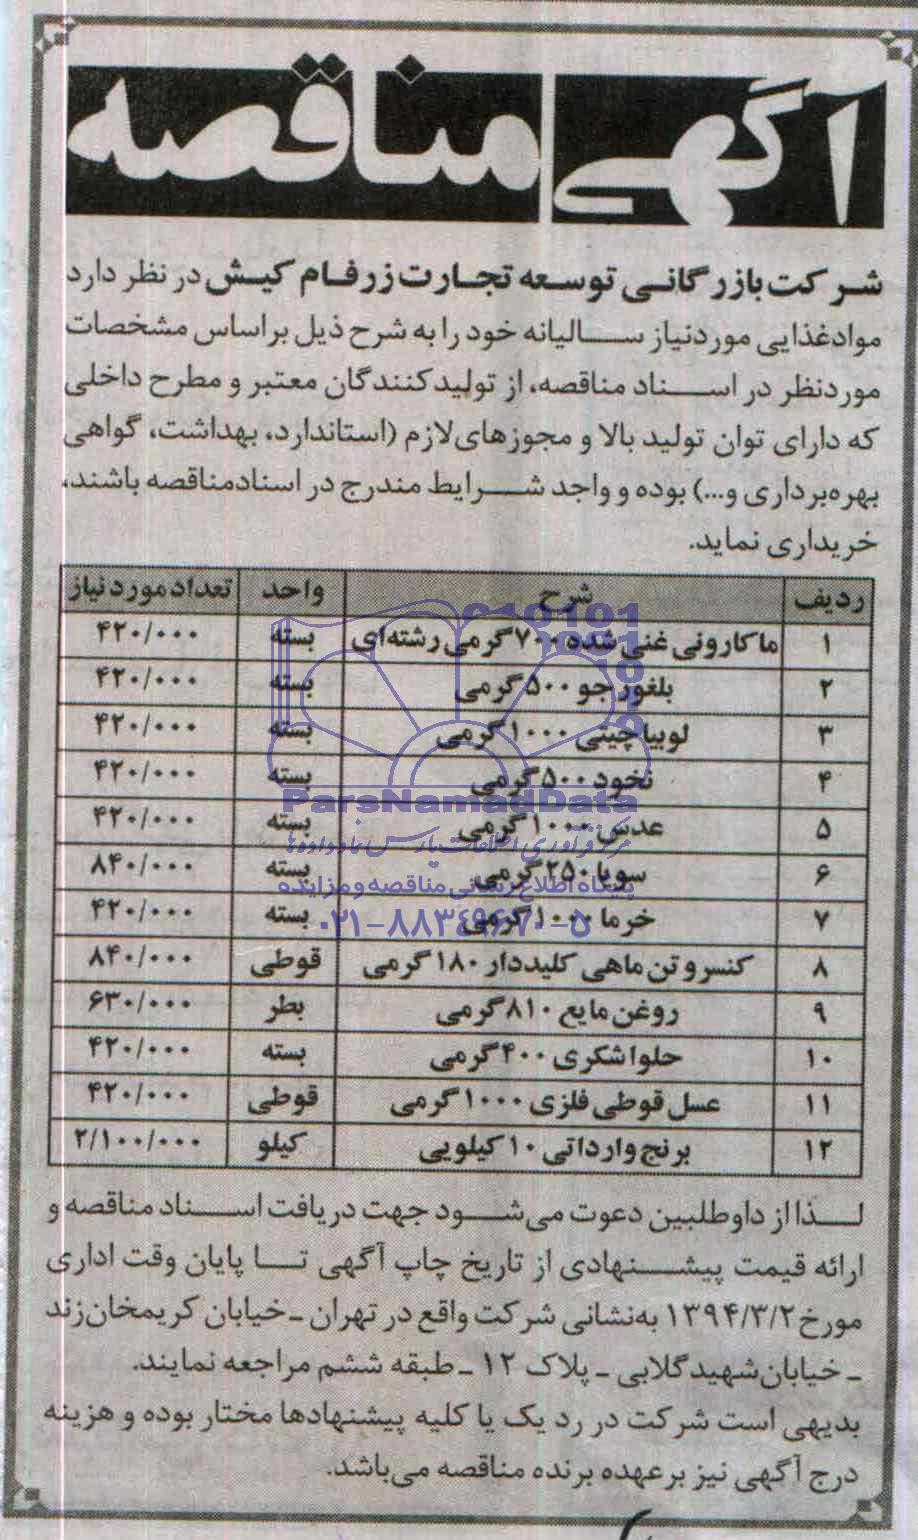 آگهی مناقصه
شرکت بازرگانی توسعه تجارت زرفام کیش در نظر دارد
مواد غذایی موردنیاز سالیانه خود را به شرح ذیل براساس مشخصات
موردنظر در اسناد مناقصه، از تولیدکنندگان معتبر و مطرح داخلی
که دارای توان تولید بالا و مجوزهای لازم (استاندارد، بهداشت، گواهی
بهره‌برداری و...) بوده و واجد شرایط مندرج در اسناد مناقصه باشند،
خریداری نماید.
ردیف شرح واحد تعداد مورد نیاز
۱ ماکارونی غنی شده ۷۰۰ گرمی رشته‌ای بسته ۴۲۰/۰۰۰
۲ بلغور جو ۵۰۰ گرمی بسته ۴۲۰/۰۰۰
۳ لوبیا چیتی ۱۰۰۰ گرمی بسته ۴۲۰/۰۰۰
۴ نخود ۵۰۰ گرمی بسته ۴۲۰/۰۰۰
۵ عدس ۱۰۰۰ گرمی بسته ۴۲۰/۰۰۰
۶ سویا ۲۵۰ گرمی بسته ۸۴۰/۰۰۰
۷ خرما ۱۰۰۰ گرمی بسته ۴۲۰/۰۰۰
۸ کنسرو تن ماهی کلیددار ۱۸۰ گرمی قوطی ۸۴۰/۰۰۰
۹ روغن مایع ۸۱۰ گرمی بطر ۶۳۰/۰۰۰
۱۰ حلوا شکری ۴۰۰ گرمی بسته ۴۲۰/۰۰۰
۱۱ عسل قوطی فلزی ۱۰۰۰ گرمی قوطی ۴۲۰/۰۰۰
۱۲ برنج وارداتی ۱۰ کیلویی کیلو ۲/۱۰۰/۰۰۰
لذا از داوطلبین دعوت می‌شود جهت دریافت اسناد مناقصه و
ارائه قیمت پیشنهادی از تاریخ چاپ آگهی تا پایان وقت اداری
مورخ ۱۳۹۴/۳/۲ به‌نشانی شرکت واقع در تهران ـ خیابان کریمخان زند
ـ خیابان شهید گلابی ـ پلاک ۱۲ ـ طبقه ششم مراجعه نمایند.
بدیهی است شرکت در رد یک یا کلیه پیشنهادها مختار بوده و هزینه
درج آگهی نیز برعهده برنده مناقصه می‌باشد.
ParsNamadData
مرکز فرآوری اطلاعات پارس نماد داده‌ها
پایگاه اطلاع رسانی مناقصه و مزایده
۰۲۱-۸۸۳۴۹۶۷۰-۵